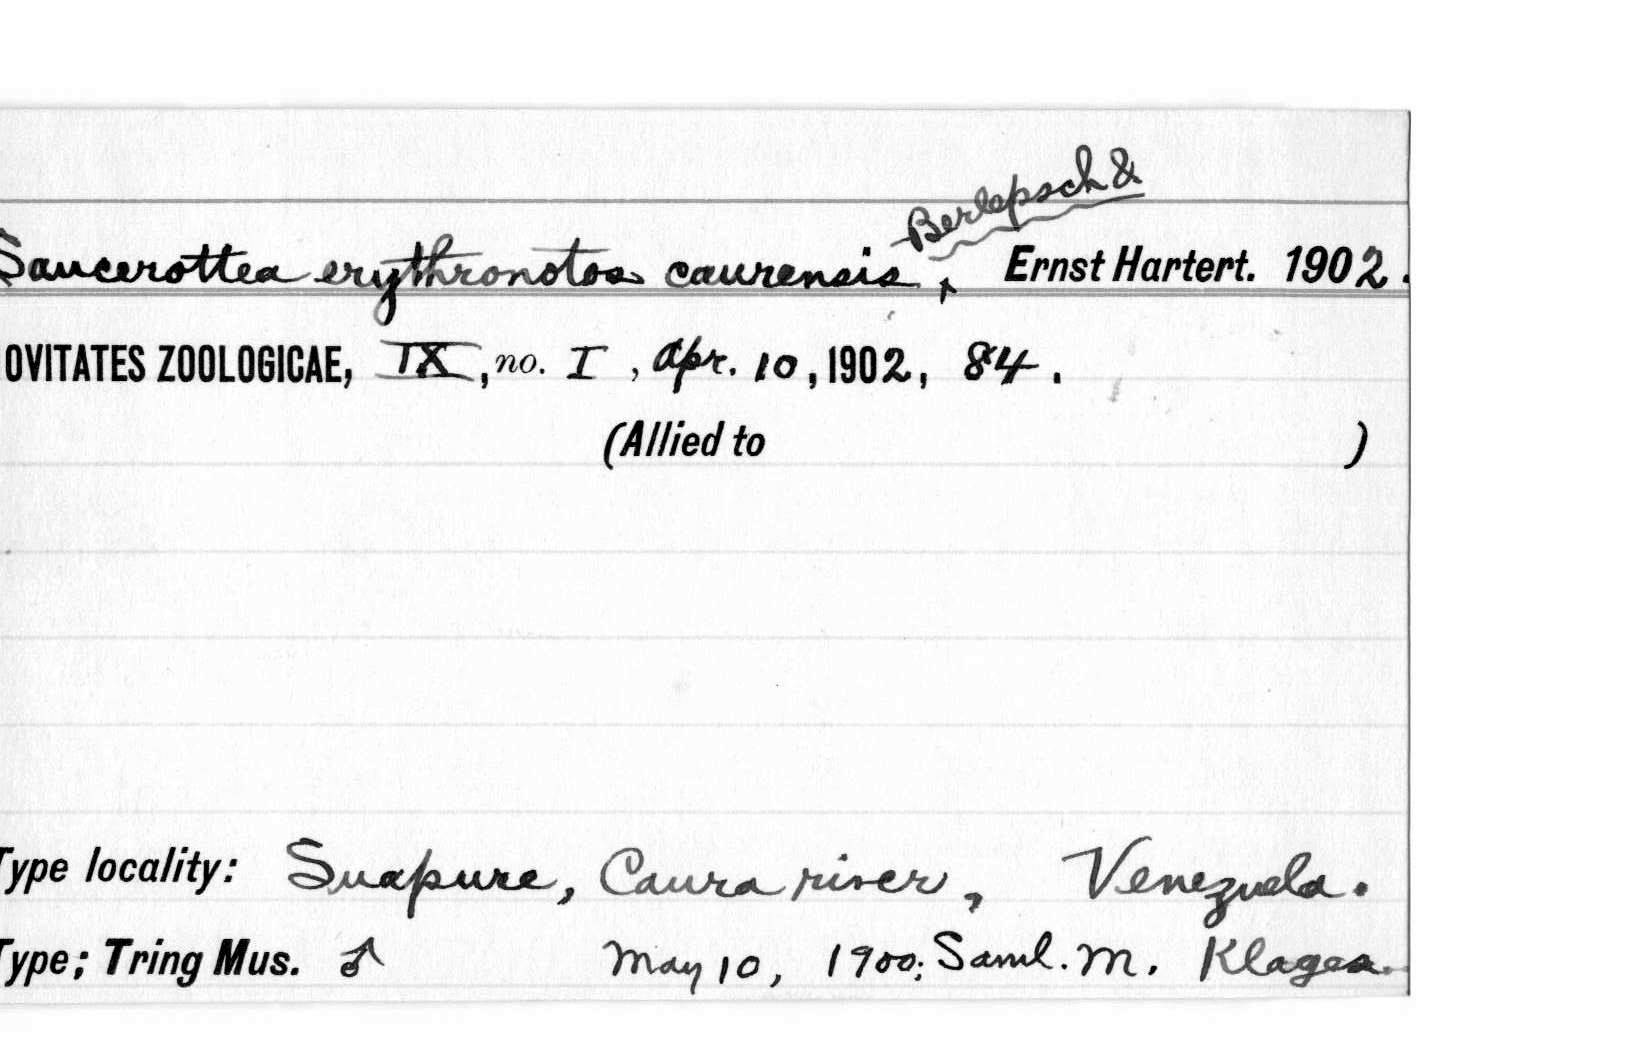 Berlepsch &
Saucerottea erythronotos caurensis, Ernst Hartert. 1902.
OVITATES ZOOLOGICAE, IX, no. I, Apr. 10, 1902, 84.
(Allied to )
Type locality: Suapure, Caura river, Venezuela.
Type; Tring Mus. ♂ May 10, 1900; Saml. M. Klages.